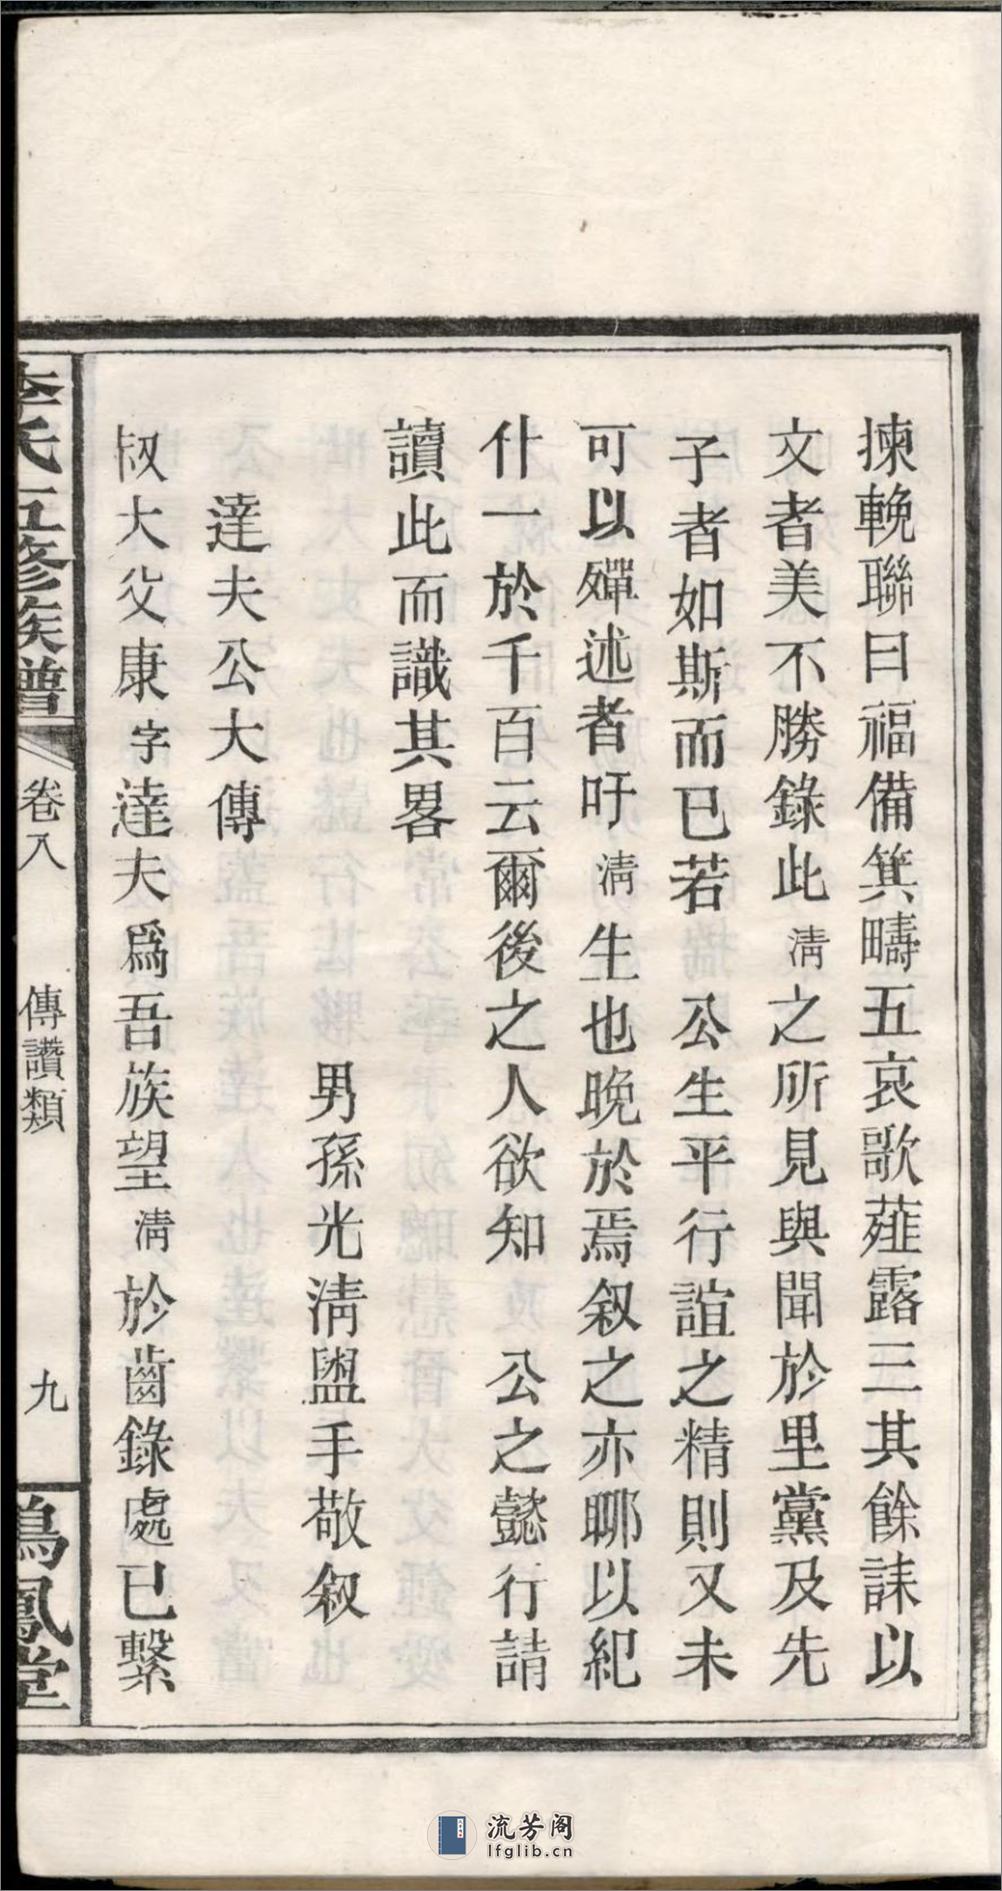 揀輓聯曰福備箕疇五哀歌薤露三其餘誄以
文者美不勝錄此清之所見與聞於里黨及先
子者如斯而已若　公生平行誼之精則又未
可以殫述者吁清生也晚於焉敘之亦聊以紀
什一於千百云爾後之人欲知　公之懿行請
讀此而識其畧
男孫光清盥手敬叙
達夫公大傳
叔大父康字達夫爲吾族望清於齒錄處已繫
李氏五修族譜
卷八
傳讚類
九
鳳堂
流芳阁
lfglib.cn